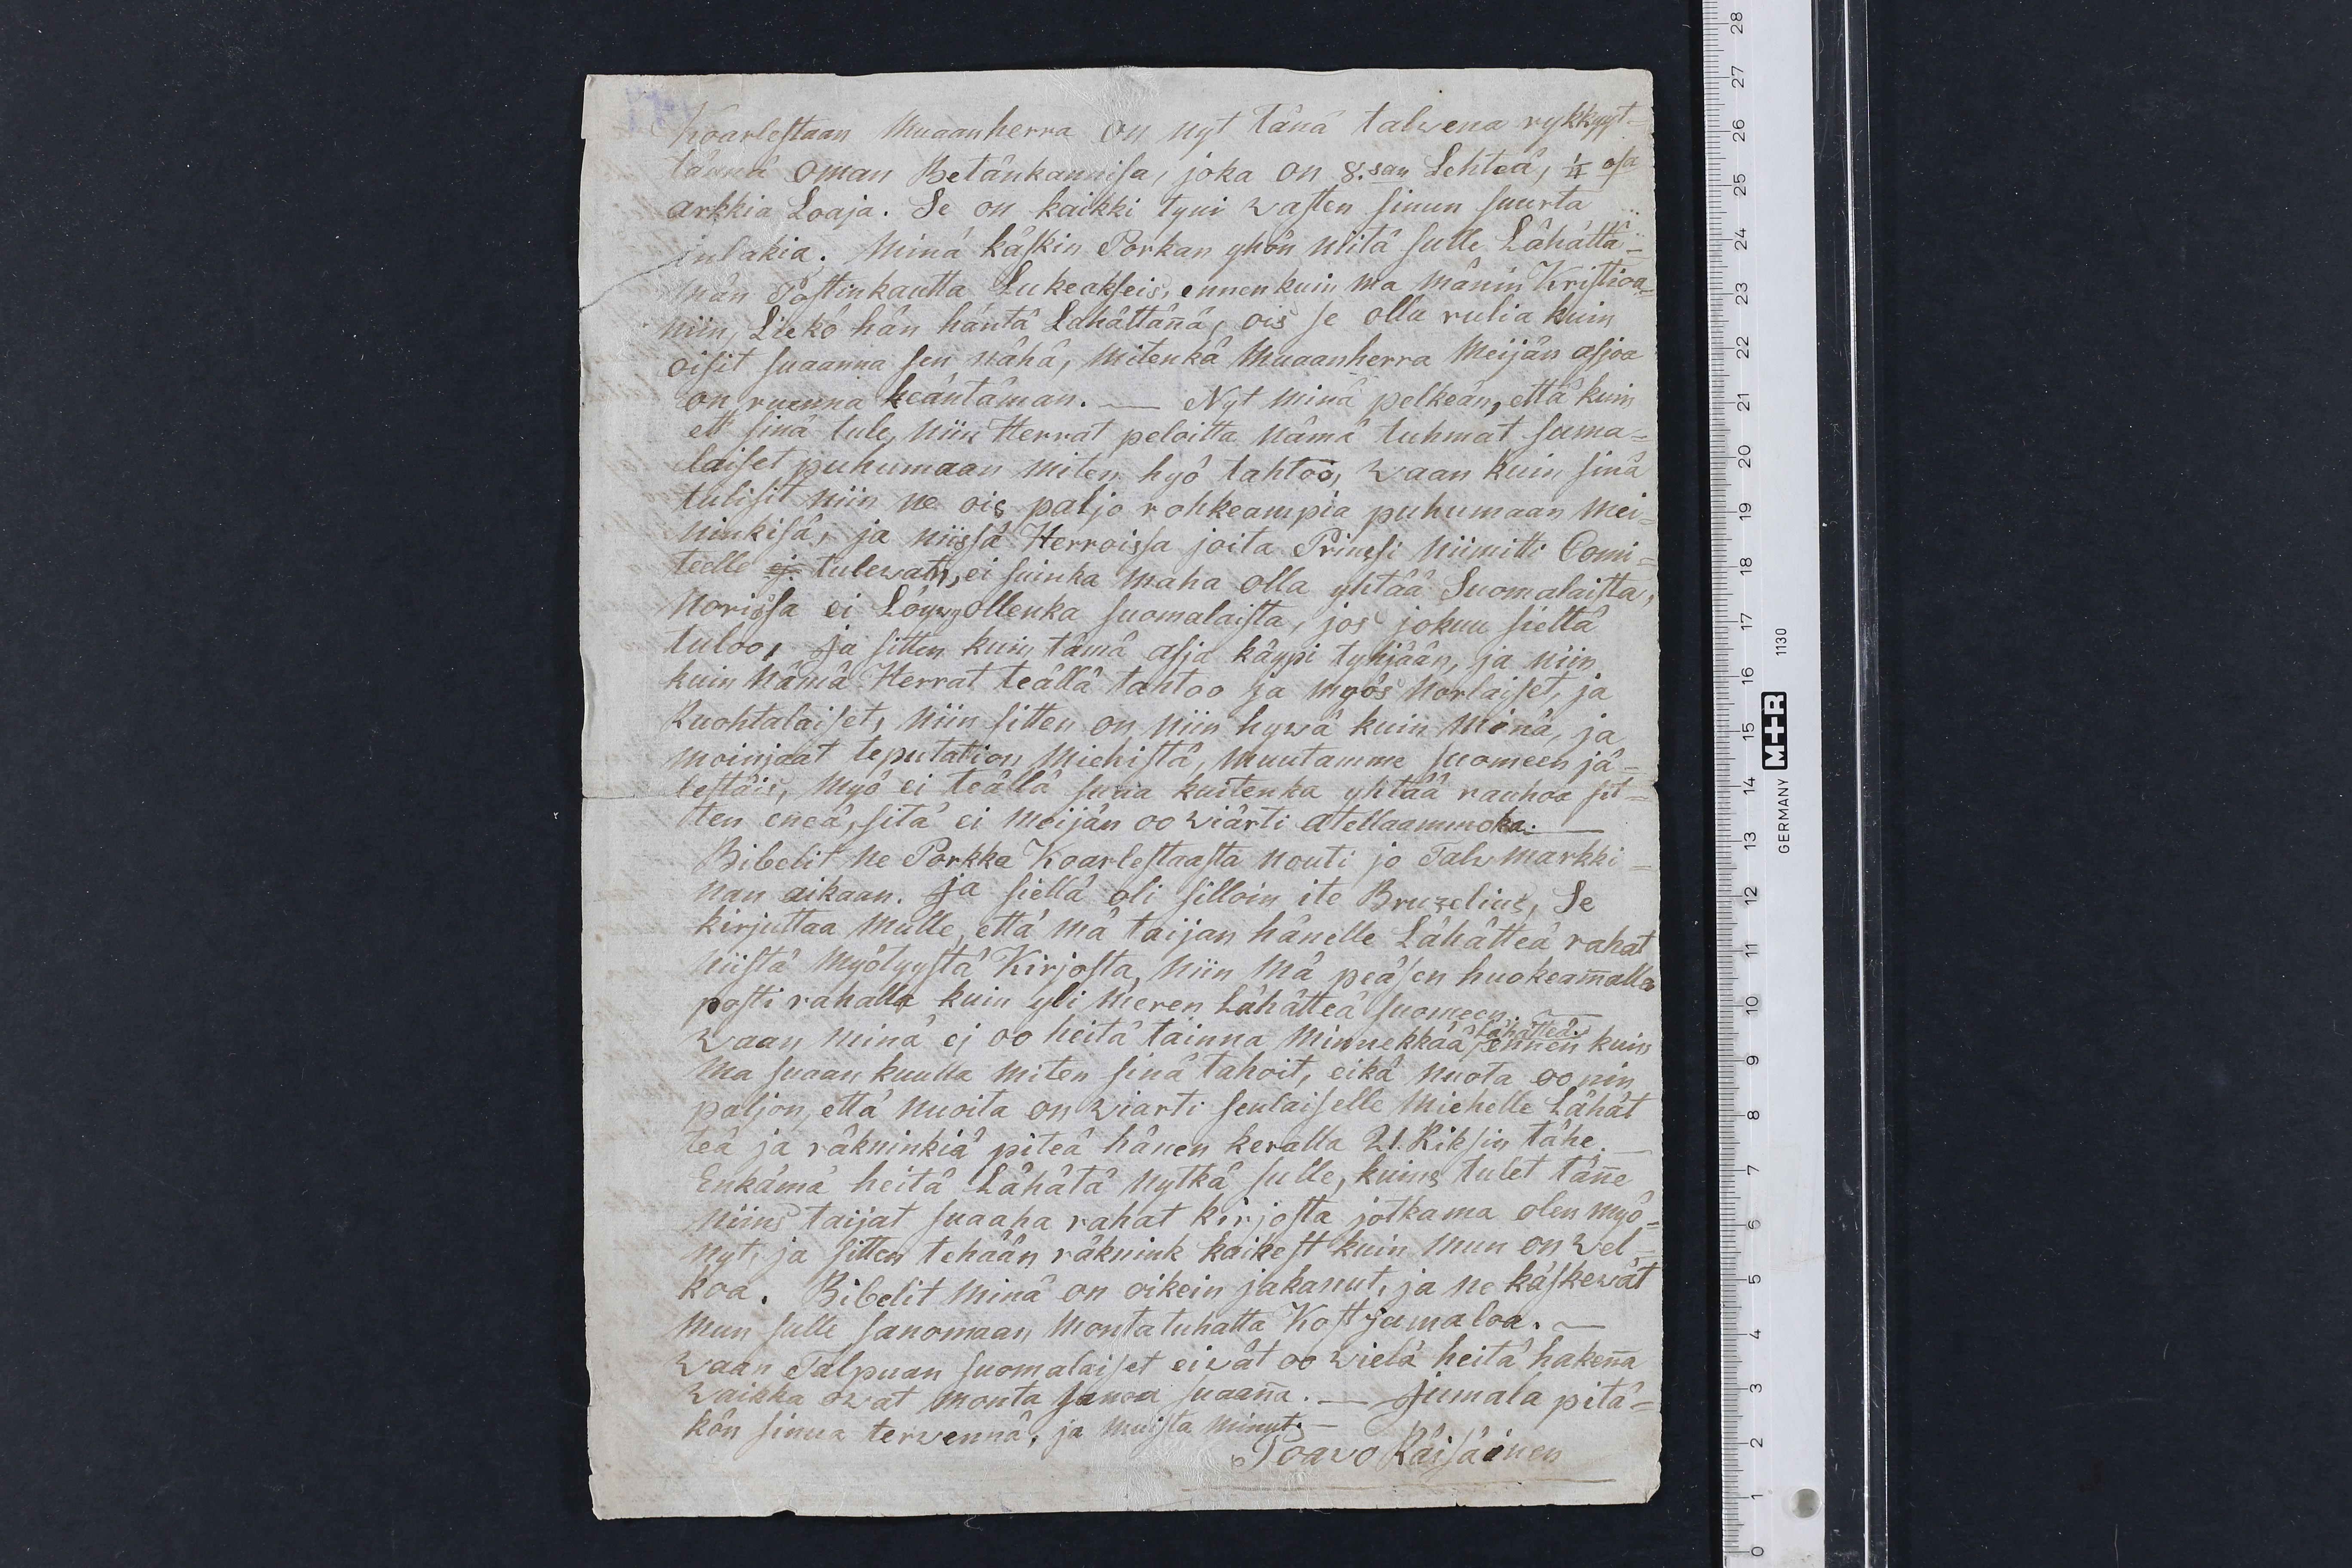 Koarlestaan Muaanherra on nyt tänä talvena rykkyyt-
tännä oman Betänkannisa, joka on 8.san Lehteä, 1/4 osa
arkkia Loaja. Se on kaikki tyni vasten sinun suurta
julakia. Minä käskin Porkan yhön niitä sulle Lähättä-
män Postinkautta Lukeakseis, ennenkuin ma männin Kristioa-
niin, Liekö hän häntä Lähättänä, ois se olla rulia kuin
oisit suaanna sen nähä, mitenkä Muaanherra Meijän asjoa
on ruenna keäntämän. — Nyt minä pelkeän, että kuin
et sinä tule, niin Herrat peloitta nämä tuhmat suma=
laiset puhumaan miten hyö tahtoo, vaan kuin sinä
tulisit niin ne ois paljo rohkeampia puhumaan mei=
ninkisä, ja niissä Herroissa joita Prinssi niimitti Comi=
teelle ej tulevat, ei suinka maha olla yhtää Suomalaista,
Norissa ei Löyvy ollenka suomalaista, jos jokuu sieltä
tuloo, Ja sitten kuin tämä asja käypi tyhjään, ja niin
kuin Nämä Herrat teällä tahtoo ja myös Norlaiset, ja
Ruohtalaiset, niin sitten on niin hyvä kuin Minä, ja
moinjaat teputation Miehistä, muutamme suomeen jä=
lestäis, Myö ei teällä suua kuitenka yhtää rauhoa sit=
ten eneä, sitä ei meijän oo viärti atellaammoka. —
Bibelit ne Porkka Koarlestaasta nouti jo Talv markki=
nan aikaan. Ja siellä oli silloin ite Bruzelius, Se
kirjuttaa Mulle, että mä taijan hänelle Lähätteä rahat
niistä Myötyystä Kirjosta, niin Mä peäsen huokeam̅alla
posti rahalla kuin yli Meren Lähätteä suomeen. —
Vaan minä ej oo heitä tainna Minnekkää Lähätteä ennen kuin
Ma suaan kuulla miten sinä tahoit, eikä nuota oo nin
paljon, että nuoita on viarti senlaiselle Miehelle Lähät
teä ja räkninkiä piteä hänen keralla 21. Riksin tähe. —
Enkämä heitä Lähätä nytkä sulle, kuins tulet tän̅e
niins taijat suaaha rahat kirjosta jotkama olen myö=
nyt, ja sitten tehään räknink kaikest kuin mun on vel=
koa. Bibelit Minä on oikein jakanut, ja ne käskevät
Mun sulle sanomaan Montatuhatta Kostjumaloa. —
Vaan Talpuan suomalaiset eivät oo vielä heitä haken̅a
vaikka ovat monta sanoa suaan̅a. — Jumala pitä=
kön sinua tervennä, ja muista minut. —
Poavo Räisäinen
GERMANY M+R 1130
28 27 26 25 24 23 22 21 20 19 18 17 16 15 14 13 12 11 10 9 8 7 6 5 4 3 2 1 0